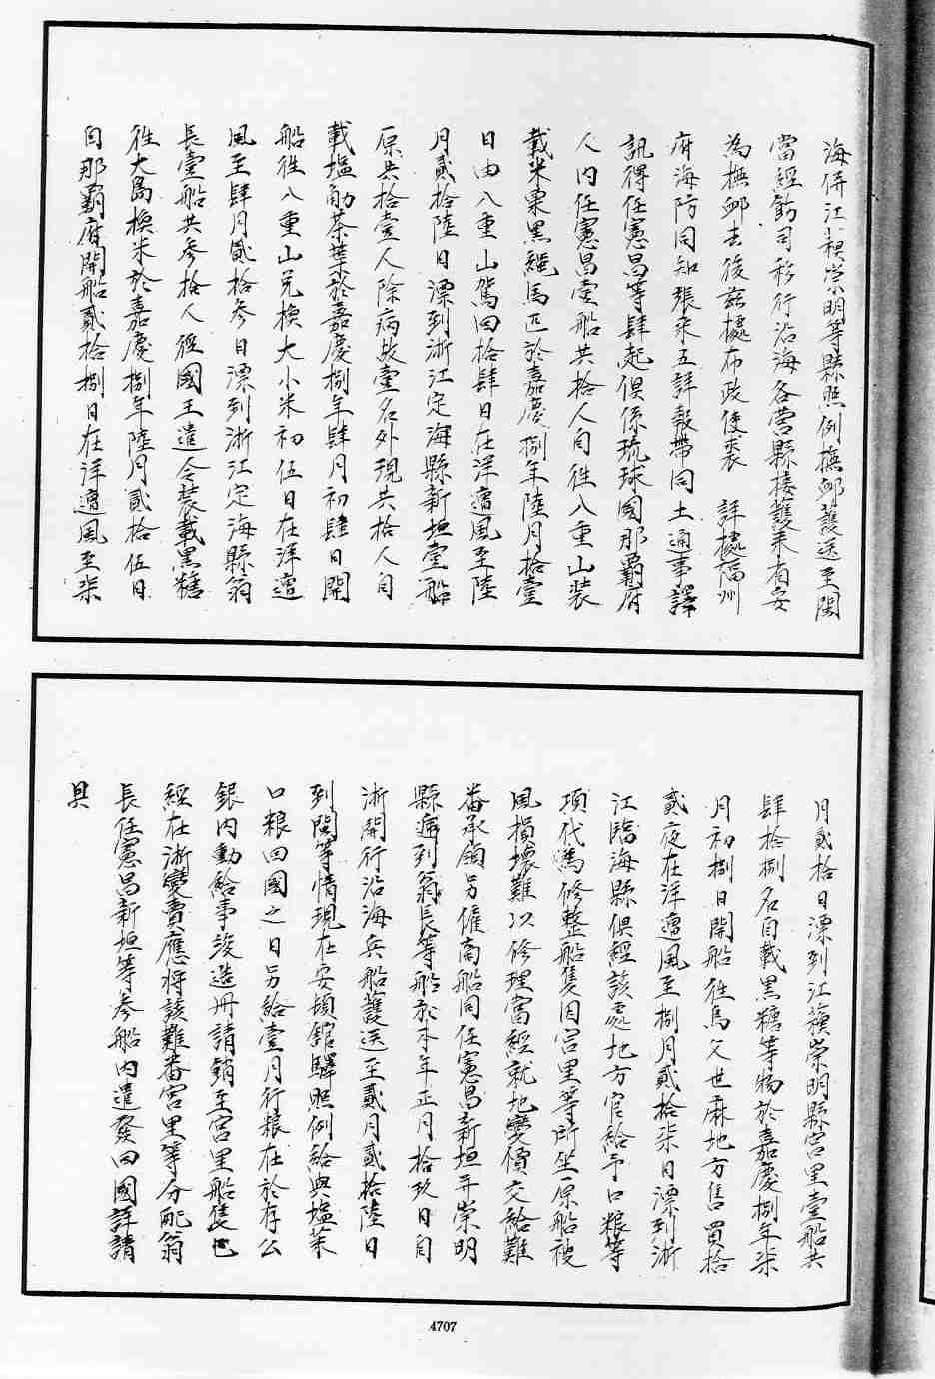 海併江蘇崇明等縣照例撫卹護送至閩
當經飭司移行沿海各營縣接護來省安
為撫卹去後茲據布政使裘 詳據福州
府海防同知張采五詳報帶同土通事譯
訊得任憲昌等肆起俱係琉球國那覇府
人內任憲昌壹船共拾人自徃八重山裝
載米粟黑繩馬匹於嘉慶捌年陸月拾壹
日由八重山駕回拾肆日在洋遭風至陸
月貳拾陸日漂到浙江定海縣新垣壹船
原共拾壹人除病故壹名外現共拾人自
載塩觔茶葉於嘉慶捌年肆月初肆日開
船徃八重山兌換大小米初伍日在洋遭
風至肆月貳拾參日漂到浙江定海縣翁
長壹船共參拾人經國王遣令裝載黑糖
徃大島換米於嘉慶捌年陸月貳拾伍日
自那覇府開船貳拾捌日在洋遭風至柒
月貳拾日漂到江蘇崇明縣宮里壹船共
肆拾捌名自載黑糖等物於嘉慶捌年柒
月初捌日開船徃馬久世麻地方售買拾
貳夜在洋遭風至捌月貳拾柒日漂到浙
江臨海縣俱經該處地方官給予口粮等
項代為修整船隻因宮里等所坐原船被
風損壞難以修理當經就地變價交給難
番承領另僱商船同任憲昌新垣并崇明
縣逓到翁長等船於本年正月拾玖日自
浙開行沿海兵船護送至貳月貳拾陸日
到閩等情現在安頓館驛照例給與塩菜
口粮回國之日另給壹月行粮在於存公
銀內動給事竣造冊請銷至宮里船隻已
經在浙變賣應將該難番宮里等分配翁
長任憲昌新垣等參船內遣發回國詳請
具
4707